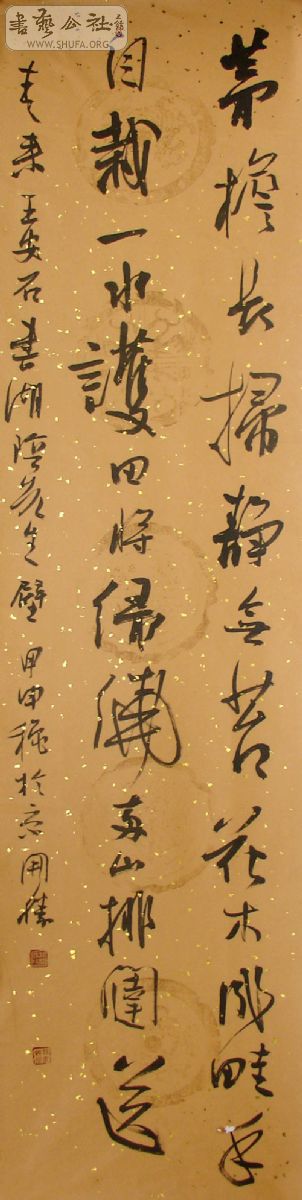 茅檐長掃靜無苔花木成畦手
自栽一水護田將綠繞兩山排闥送
青來 王安石書湖陰先生壁 甲申 於京 用
書藝公社
WWW.SHUFA.ORG